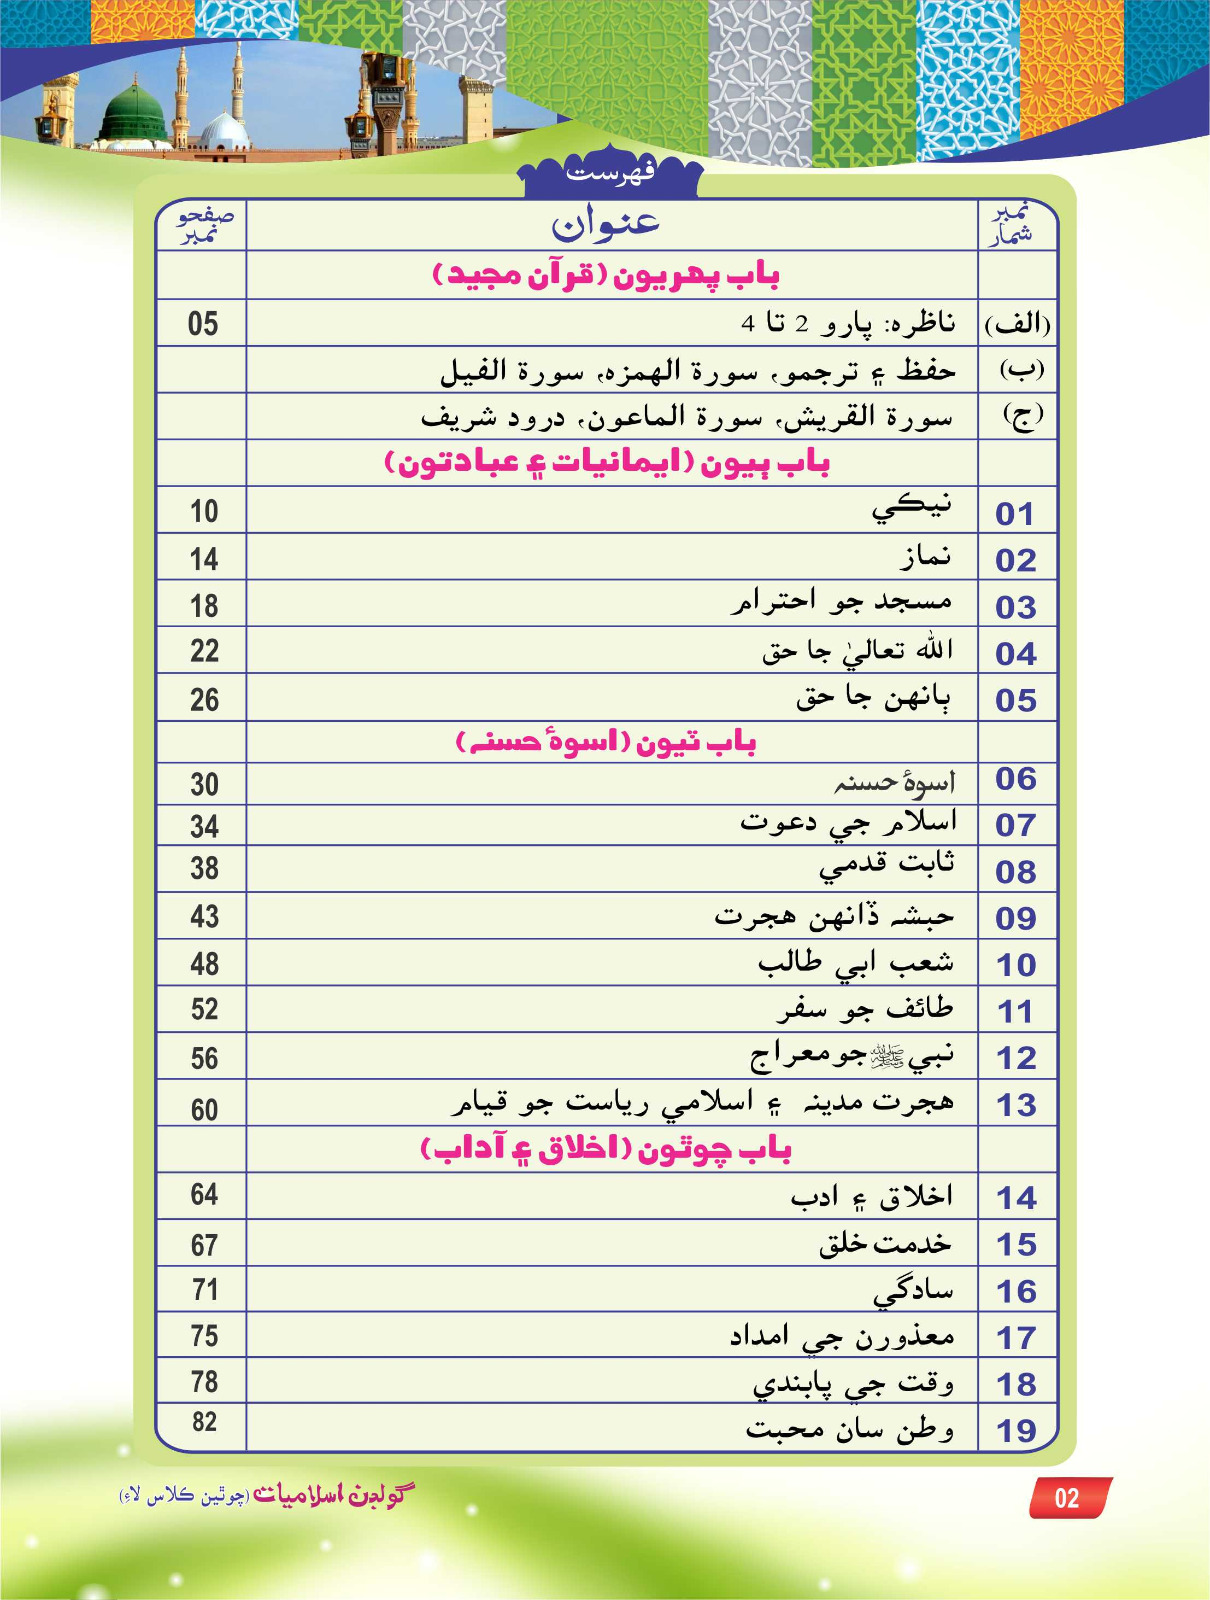 فهرست
نمبر شمار عنوان صفحو نمبر
باب پهريون (قرآن مجيد)
(الف) ناظره: پارو 2 تا 4 05
(ب) حفظ ۽ ترجمو، سورة الهمزه، سورة الفيل
(ج) سورة القريش، سورة الماعون، درود شريف
باب ٻيون (ايمانيات ۽ عبادتون)
01 نيڪي 10
02 نماز 14
03 مسجد جو احترام 18
04 الله تعاليٰ جا حق 22
05 ٻانهن جا حق 26
باب ٽيون (اسوهٔ حسنہ)
06 اسوهٔ حسنہ 30
07 اسلام جي دعوت 34
08 ثابت قدمي 38
09 حبشہ ڏانهن هجرت 43
10 شعب ابي طالب 48
11 طائف جو سفر 52
12 نبي ﷺ جو معراج 56
13 هجرت مدينہ ۽ اسلامي رياست جو قيام 60
باب چوٿون (اخلاق ۽ آداب)
14 اخلاق ۽ ادب 64
15 خدمت خلق 67
16 سادگي 71
17 معذورن جي امداد 75
18 وقت جي پابندي 78
19 وطن سان محبت 82
گولڊن اسلاميات (چوٿين ڪلاس لاءِ)
02